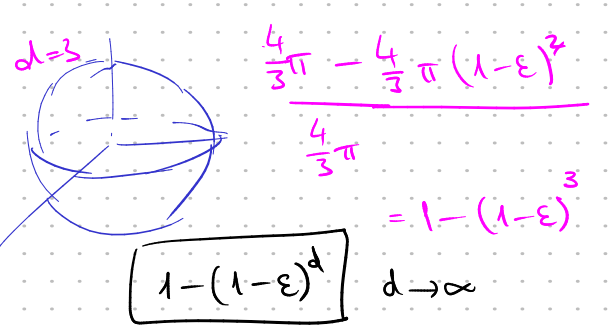 d=3
4/3 π − 4/3 π (1−ε)³
4/3 π
= 1 − (1−ε)³
1−(1−ε)^d d→∞